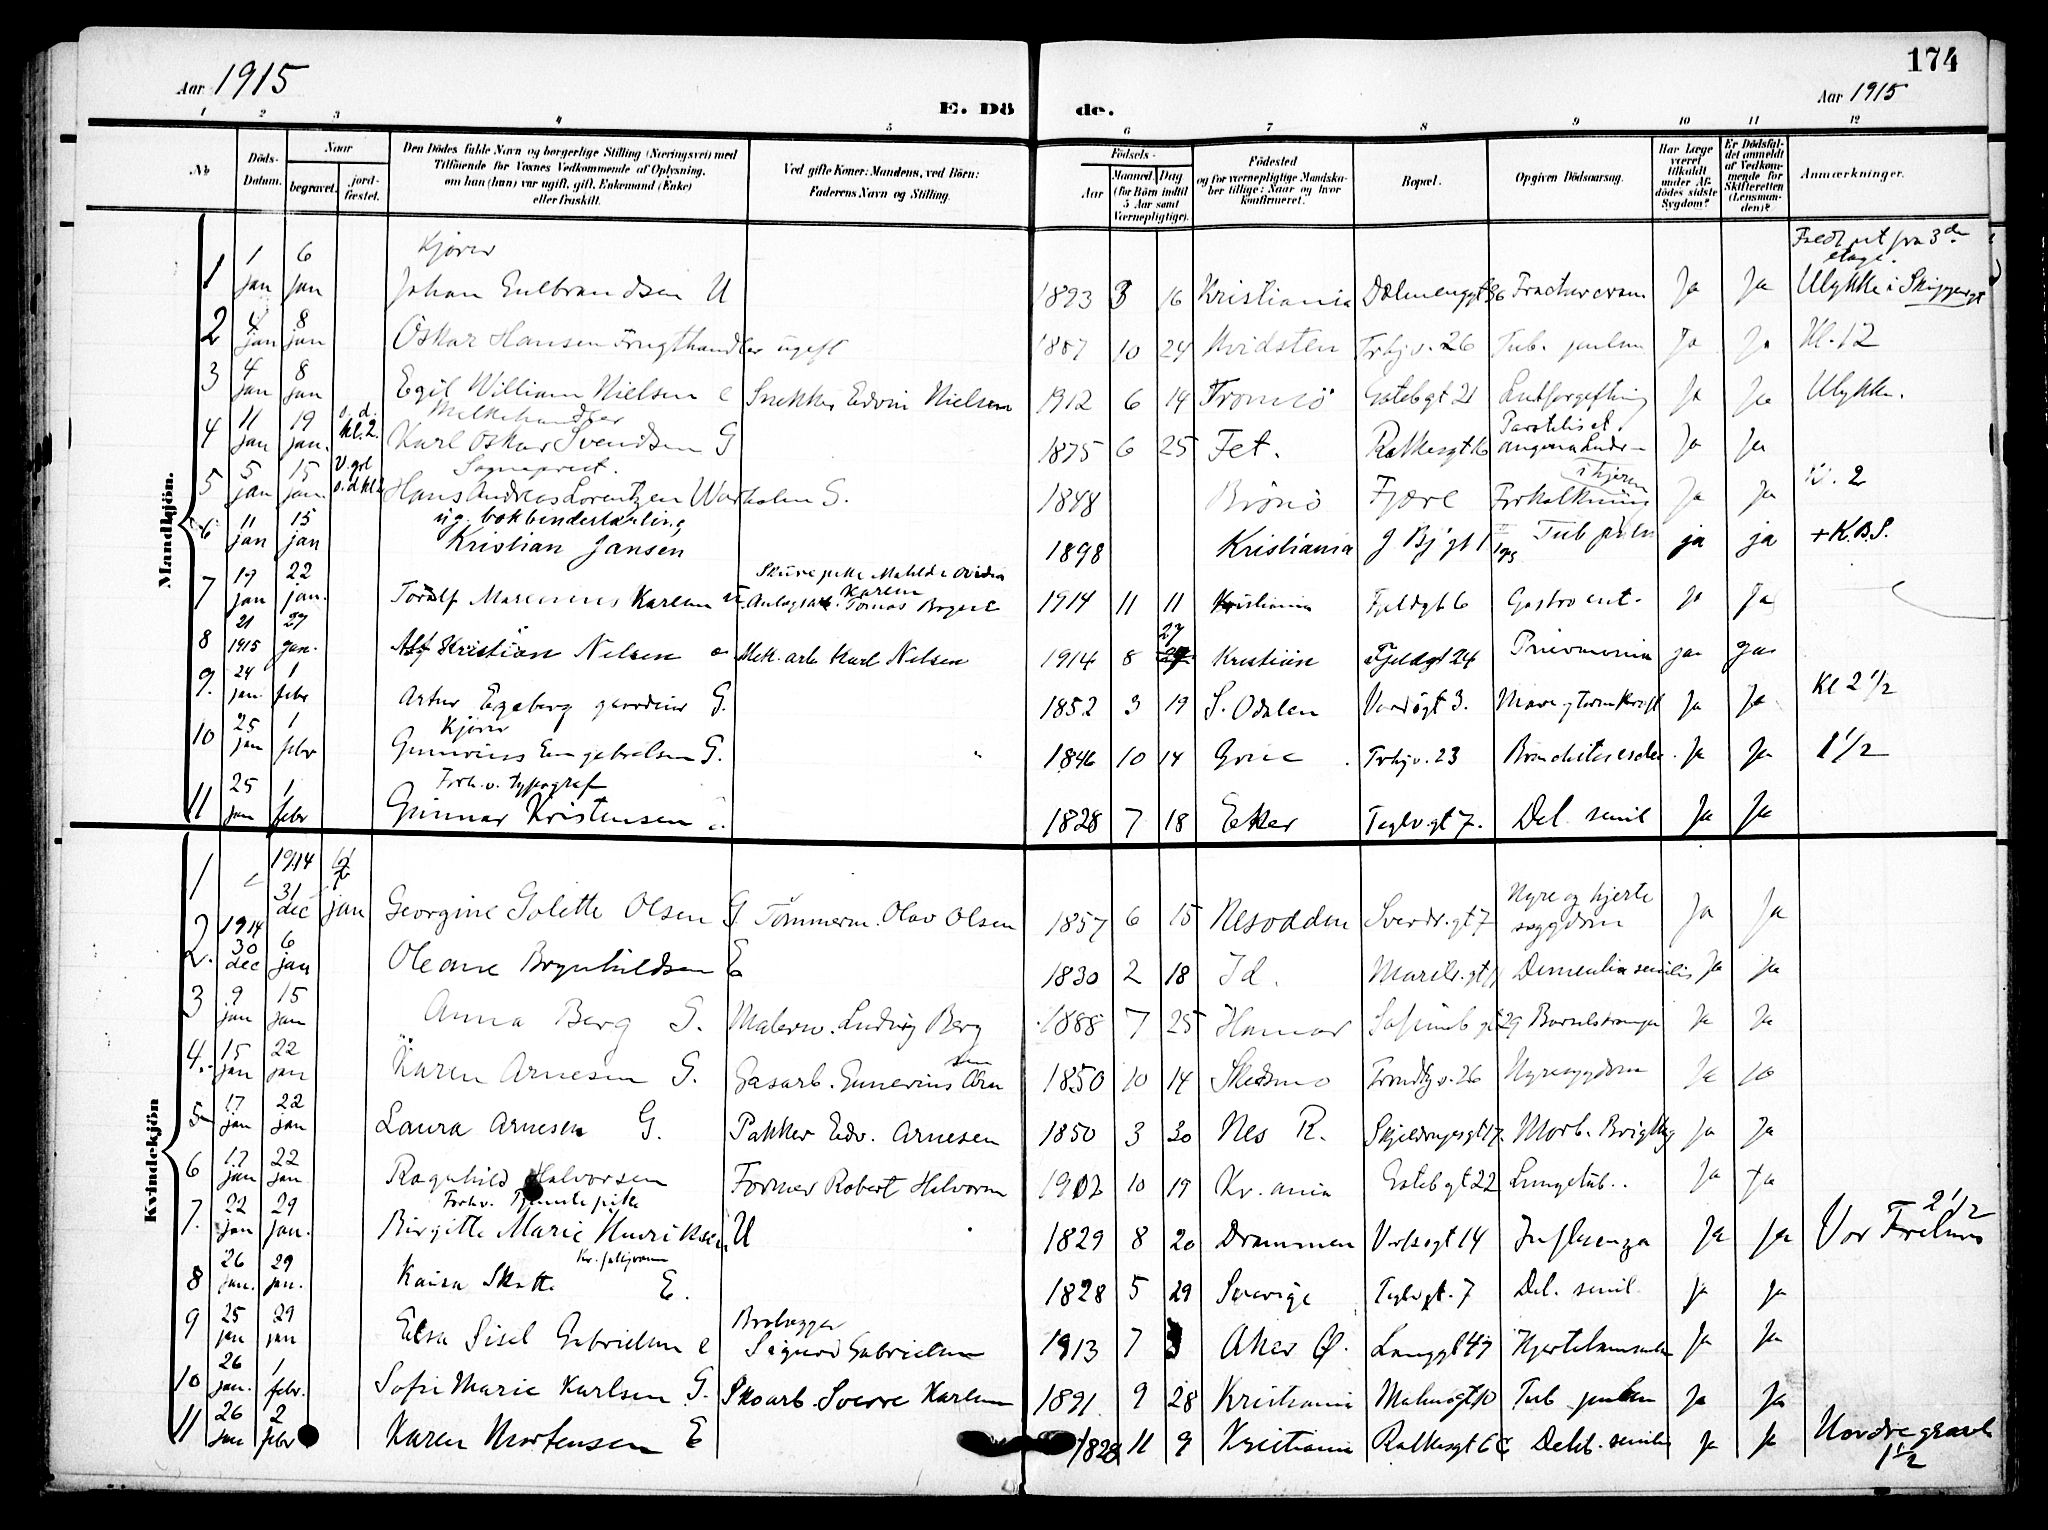 174
Aar 1915
Aar 1915
E. Dö de.
1 2 3 4 5 6 7 8 9 10 11 12
No
Döds-Datum.
Naar
begravet.
jord-fæstet.
Den Dödes fulde Navn og borgerlige Stilling (Næringsvei) med Tilföiende for Voxnes Vedkommende af Oplysning, om han (hun) var ugift, gift, Enkemand (Enke) eller fraskilt.
Ved gifte Koner: Mandens, ved Börn: Faderens Navn og Stilling.
Födsels-
Aar
Maaned, Dag (for Börn indtil 5 Aar samt Værnepligtige).
Födested og for værnepligtige Mandska-ber tillige: Naar og hvor konfirmeret.
Bopæl.
Opgiven Dödsaarsag.
Har Læge været tilkaldt under Af-dödes sidste Sygdom?
Er Dödsfal-det anmeldt af Vedkom-mende for Skifteretten (Lensman-den)?
Anmærkninger.
Mandkjön.
1 1 jan 6 jan Kjører Johan Gulbrandsen U 1893 8 16 Kristiania Dælenenggt 36 Ja Ja Faldt ut fra 3de etage. Ulykke i Skippergt
2 4 jan 8 jan Oskar Hansen Frugthandler ugift 1887 10 24 Kvidsten Trhjv. 26 Tub. pulm Ja Ja Kl. 12
3 4 jan 8 jan Egil William Nielsen e Snekker Edvin Nielsen 1912 6 14 Tromsö Gøtebgt 21 Lutforgiftning Ja Ja Ulykke.
4 11 jan 19 jan. s. d. kl. 2. Melkehandler Karl Oskar Svendsen G 1875 6 25 Fet. Ratkesgt 6 Parotitis et angina Ja Ja
5 5 jan 15 jan V. grl s. d. kl Sogneprest. Hans Andreas Lorentzen Warholm G. 1848 Brönö Fjære Forkalkning i hjern Ja Ja kl. 2
6 11 jan 15 jan ug. bokbinderlærling Kristian Jansen 1898 Kristiania J Bj gt 1 Tub pulm ja ja + K.B.S.
7 19 jan 22 jan. Toralf Marenius Karlsen u Skurepike Matilde Ovidia Karlsen Anlagsarb. Tomas 1914 11 11 Kristiania Fjeldgt 6 Gastroent. Ja Ja
8 21 1915 27 jan. Alf Kristian Nilsen e Mek. arb Karl Nelsen 1914 8 27 Kristian Fjeldgt 24 Pnevmonia ja ja
9. 24 jan. 1 febr Artur Egeberg gardner G. 1852 3 19 S. Odalen Vardøgt 3. Mave og tarmkreft Ja Ja Kl 2 1/2
10 25 jan 1 febr Kjører Gunerius Engebretsen G. 1846 10 14 Grue Trhjv. 23 Ja Ja 1 1/2
11 25 jan 1 febr Forh. v. typograf Gunnar Kristensen 1828 7 18 Eker Teglv.gt 7. Del. senil Ja Ja
Kvindekjön
1 1914 31 dec jan Georgine Golette Olsen G Tömmerm. Olav Olsen 1857 6 15 Nesodden Sverdr.gt 7 Nyre og hjerte sygdom Ja Ja
2. 1914 30 dec 6 jan Oleane Brynhildsen E 1830 2 18 Id. Marids.gt 11 Dementia senilis Ja Ja
3 9 jan 15 jan Anna Berg G. Malersv. Ludvig Berg 1888 7 25 Hamar Sofienb gt 29 Ja Ja
4. 15 jan 22 jan Karen Arnesen G. Gasarb. Gunerius Arnesen 1850 10 14 Skedsmo Trondhjv. 26 Nyresygdom Ja Ja
5 17 jan 22 jan Laura Arnesen G. Pakker Edv. Arnesen 1850 3 30 Nes R. Skjeldrupsgt 17. Morb. Brigthy Ja Ja
6 17 jan 22 jan Ragnhild Halvorsen Former Robert Halvorsen 1902 10 19 Kr. ania Gøtebgt 22 Lungetub. Ja Ja
7. 22 jan 29 jan. Forhv. Tjenstepike Birgitte Marie Henriksen U 1829 8 20 Drammen Vorlsøgt 14 Influenza Ja Ja Vor Frelsers 2 1/2
8 26 jan. 29 jan. Kaisa Skatte E. 1828 5 29 Sverige Teglvgt. 7 Del. senil Ja Ja
9 25 jan 29 jan Elsa Sisel Gabrielsen e Brolægger Sigurd Gabrielsen 1913 7 3 Aker Ø. Langgt 47 Ja Ja
10 26 jan. 1 febr. Sofie Marie Karlsen G. Skoarb. Sverre Karlsen 1891 9 28 Kristiania Malmøgt 10 Tub pulm Ja Ja
11 26 jan 2 febr Karen Mortensen E 1828 11 9 Kristiania Ratkesgt 6 C Debil. senilis Ja Ja Nordre gravl 1 1/2